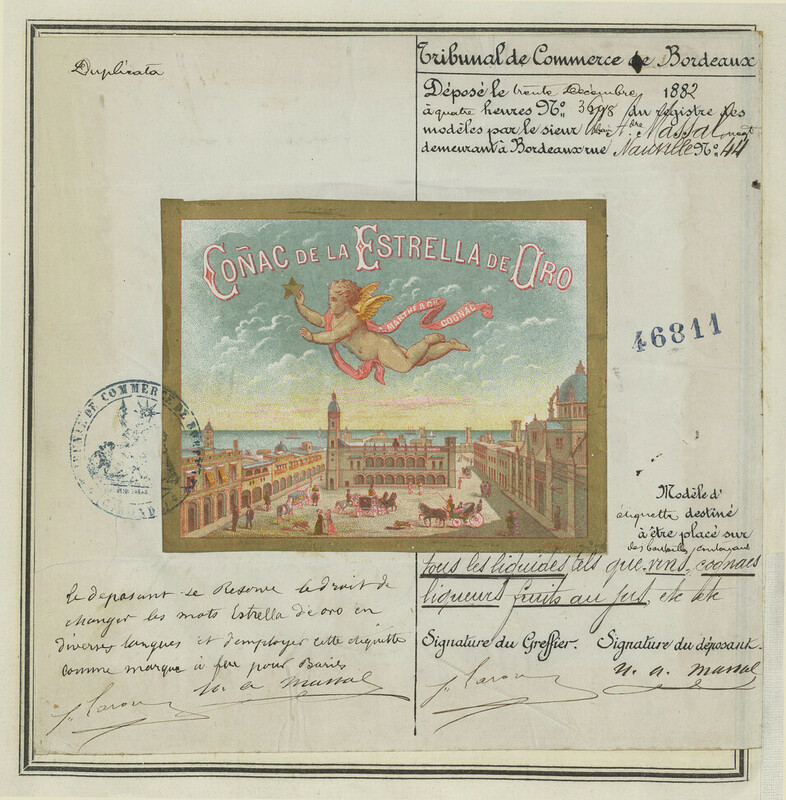 Duplicata
Tribunal de Commerce de Bordeaux
Déposé le trente Décembre 1882
à quatre heures No. du registre des
modèles par le sieur
demeurant à Bordeaux rue No. 44
COÑAC DE LA ESTRELLA DE ORO
COGNAC
46811
COMMERCE DE
Modèle d'
étiquette destiné
à être placé sur
des bouteilles contenant
tous les liquides tels que vins, cognacs
liqueurs fruits au jus, etc etc
Le déposant se Réserve le droit de
changer les mots Estrella de oro en
diverses langues et d'employer cette étiquette
comme marque à feu pour Barils
Signature du Greffier. Signature du déposant.